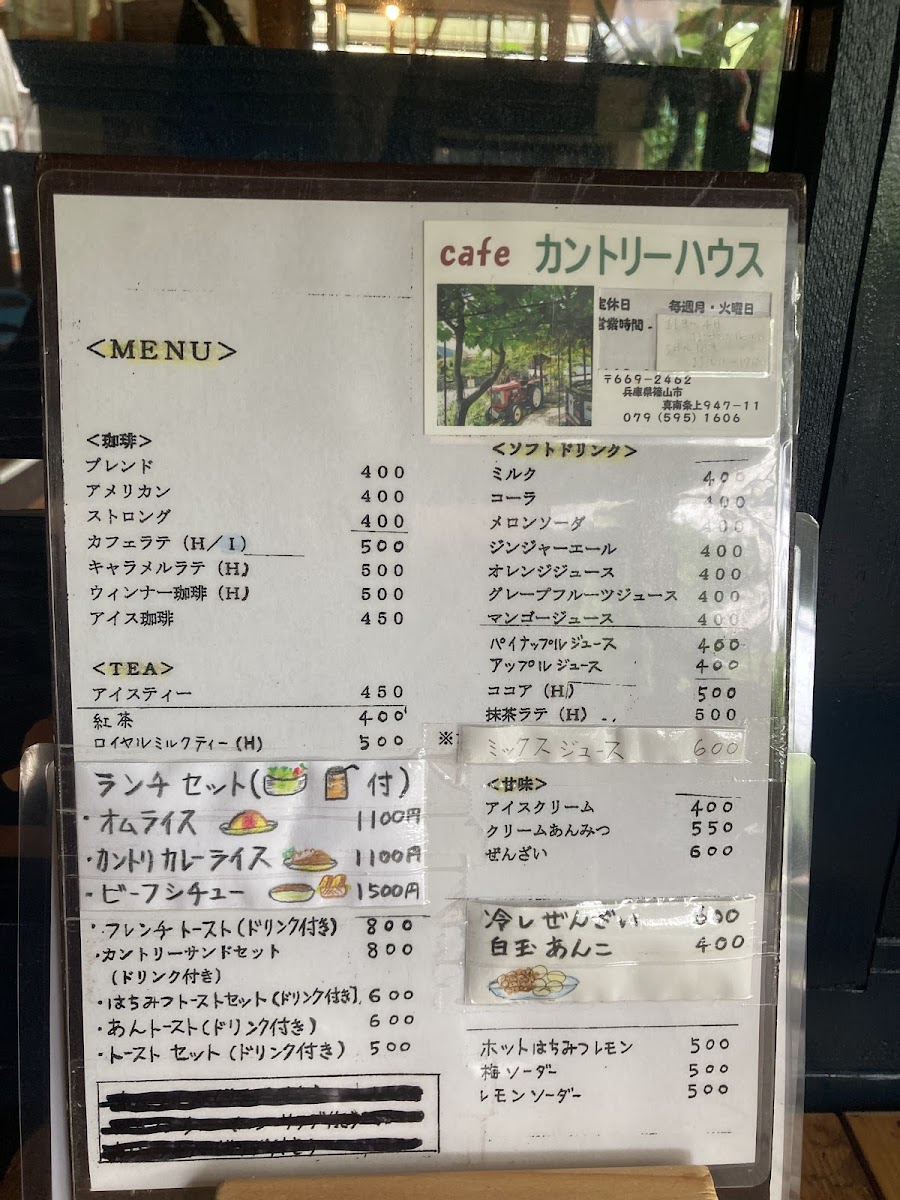 cafe カントリーハウス
定休日 毎週月・火曜日
営業時間
〒669-2462
兵庫県篠山市
真南条上947-11
079(595)1606
<MENU>
<珈琲>
ブレンド 400
アメリカン 400
ストロング 400
カフェラテ(H/I) 500
キャラメルラテ(H) 500
ウィンナー珈琲(H) 500
アイス珈琲 450
<TEA>
アイスティー 450
紅茶 400
ロイヤルミルクティー(H) 500
ランチセット( 付)
・オムライス 1100円
・カントリカレーライス 1100円
・ビーフシチュー 1500円
・フレンチトースト(ドリンク付き) 800
・カントリーサンドセット 800
(ドリンク付き)
・はちみつトーストセット(ドリンク付き) 600
・あんトースト(ドリンク付き) 600
・トーストセット(ドリンク付き) 500
<ソフトドリンク>
ミルク 400
コーラ 400
メロンソーダ 400
ジンジャーエール 400
オレンジジュース 400
グレープフルーツジュース 400
マンゴージュース 400
パイナップルジュース 400
アップルジュース 400
ココア(H) 500
抹茶ラテ(H) 500
※
ミックスジュース 600
<甘味>
アイスクリーム 400
クリームあんみつ 550
ぜんざい 600
冷しぜんざい 600
白玉あんこ 400
ホットはちみつレモン 500
梅ソーダー 500
レモンソーダー 500